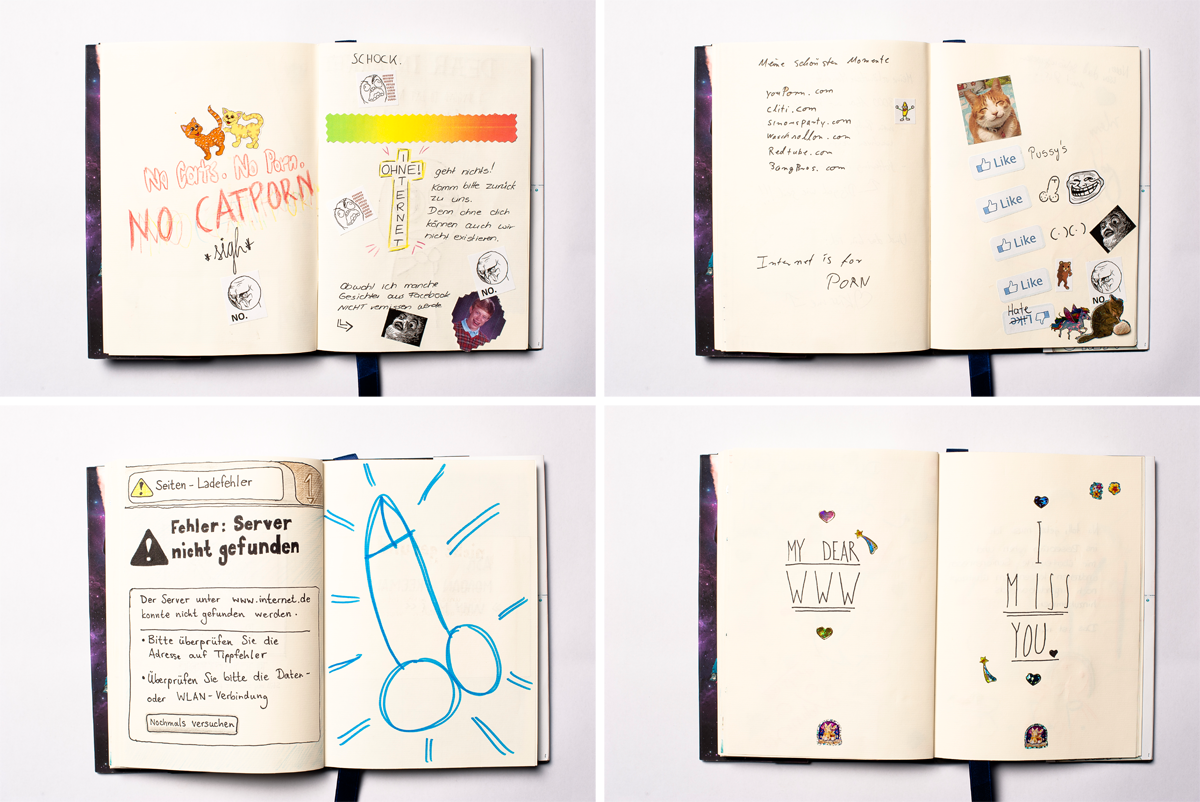 No Carts. No Porn.
NO CATPORN
*sigh*
NO.
SCHOCK.
OHNE!
INTERNET
geht nichts!
Komm bitte zurück
zu uns.
Denn ohne dich
können auch wir
nicht existieren.
NO.
Obwohl ich manche
Gesichter aus Facebook
NICHT vermissen würde
Meine schönsten Momente
youPorn.com
cliti.com
sinousparty.com
Redtube.com
BangBros.com
Internet is for
PORN
Like Pussy's
Like
Like (·)(·)
Like
NO
Hate
Like
Seiten-Ladefehler
1
Fehler: Server
nicht gefunden
Der Server unter www.internet.de
konnte nicht gefunden werden.
• Bitte überprüfen Sie die
Adresse auf Tippfehler
• Überprüfen Sie bitte die Daten-
oder WLAN-Verbindung
Nochmals versuchen
MY DEAR
WWW
I
MISS
YOU.